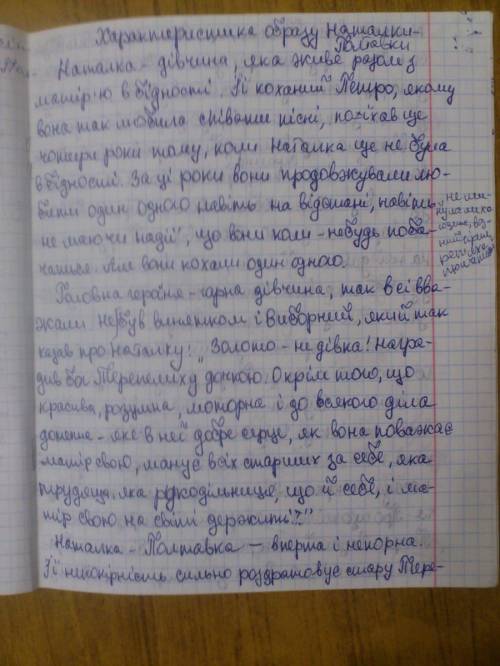 Характеристика образу Наталки-
Полтавки
Наталка - дівчина, яка живе разом з
матір'ю в бідності. Її коханий Петро, якому
вона так любила співати пісні, поїхав ще
чотири роки тому, коли Наталка ще не була
в бідності. За ці роки вони продовжували лю-
бити один одного навіть на відстані, навіть
не маючи надії, що вони коли-небудь поба-
чаться. Але вони кохали один одного.
Головна героїня - гарна дівчина, так всі вва-
жали. Не був винятком і Виборний, який так
казав про Наталку: „Золото - не дівка! Награ-
див бог Терпелиху дочкою. Окрім того, що
красива, розумна, моторна і до всякого діла
дотепна - яке в неї добре серце, як вона поважає
матір свою, шанує всіх старших за себе, яка
трудяща, яка рукодільниця, що й себе, і ма-
тір свою на світі держить!"
Наталка-Полтавка - вперта і непокірна.
Її непокірність сильно роздратовує стару Тере-